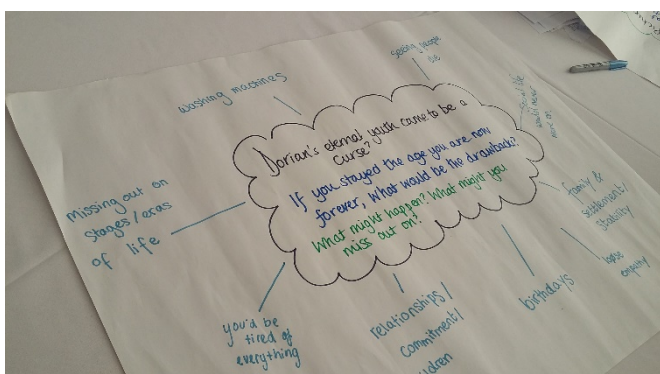 Dorian's eternal youth came to be a
curse?
If you stayed the age you are now
forever, what would be the drawback?
What might happen? What might you
miss out on?
washing machines
seeing people
die
social life
would never
move on
family &
settlement/
stability
lose
empathy
birthdays
relationships/
commitment/
you'd be
tired of
everything
missing out on
stages/eras
of life